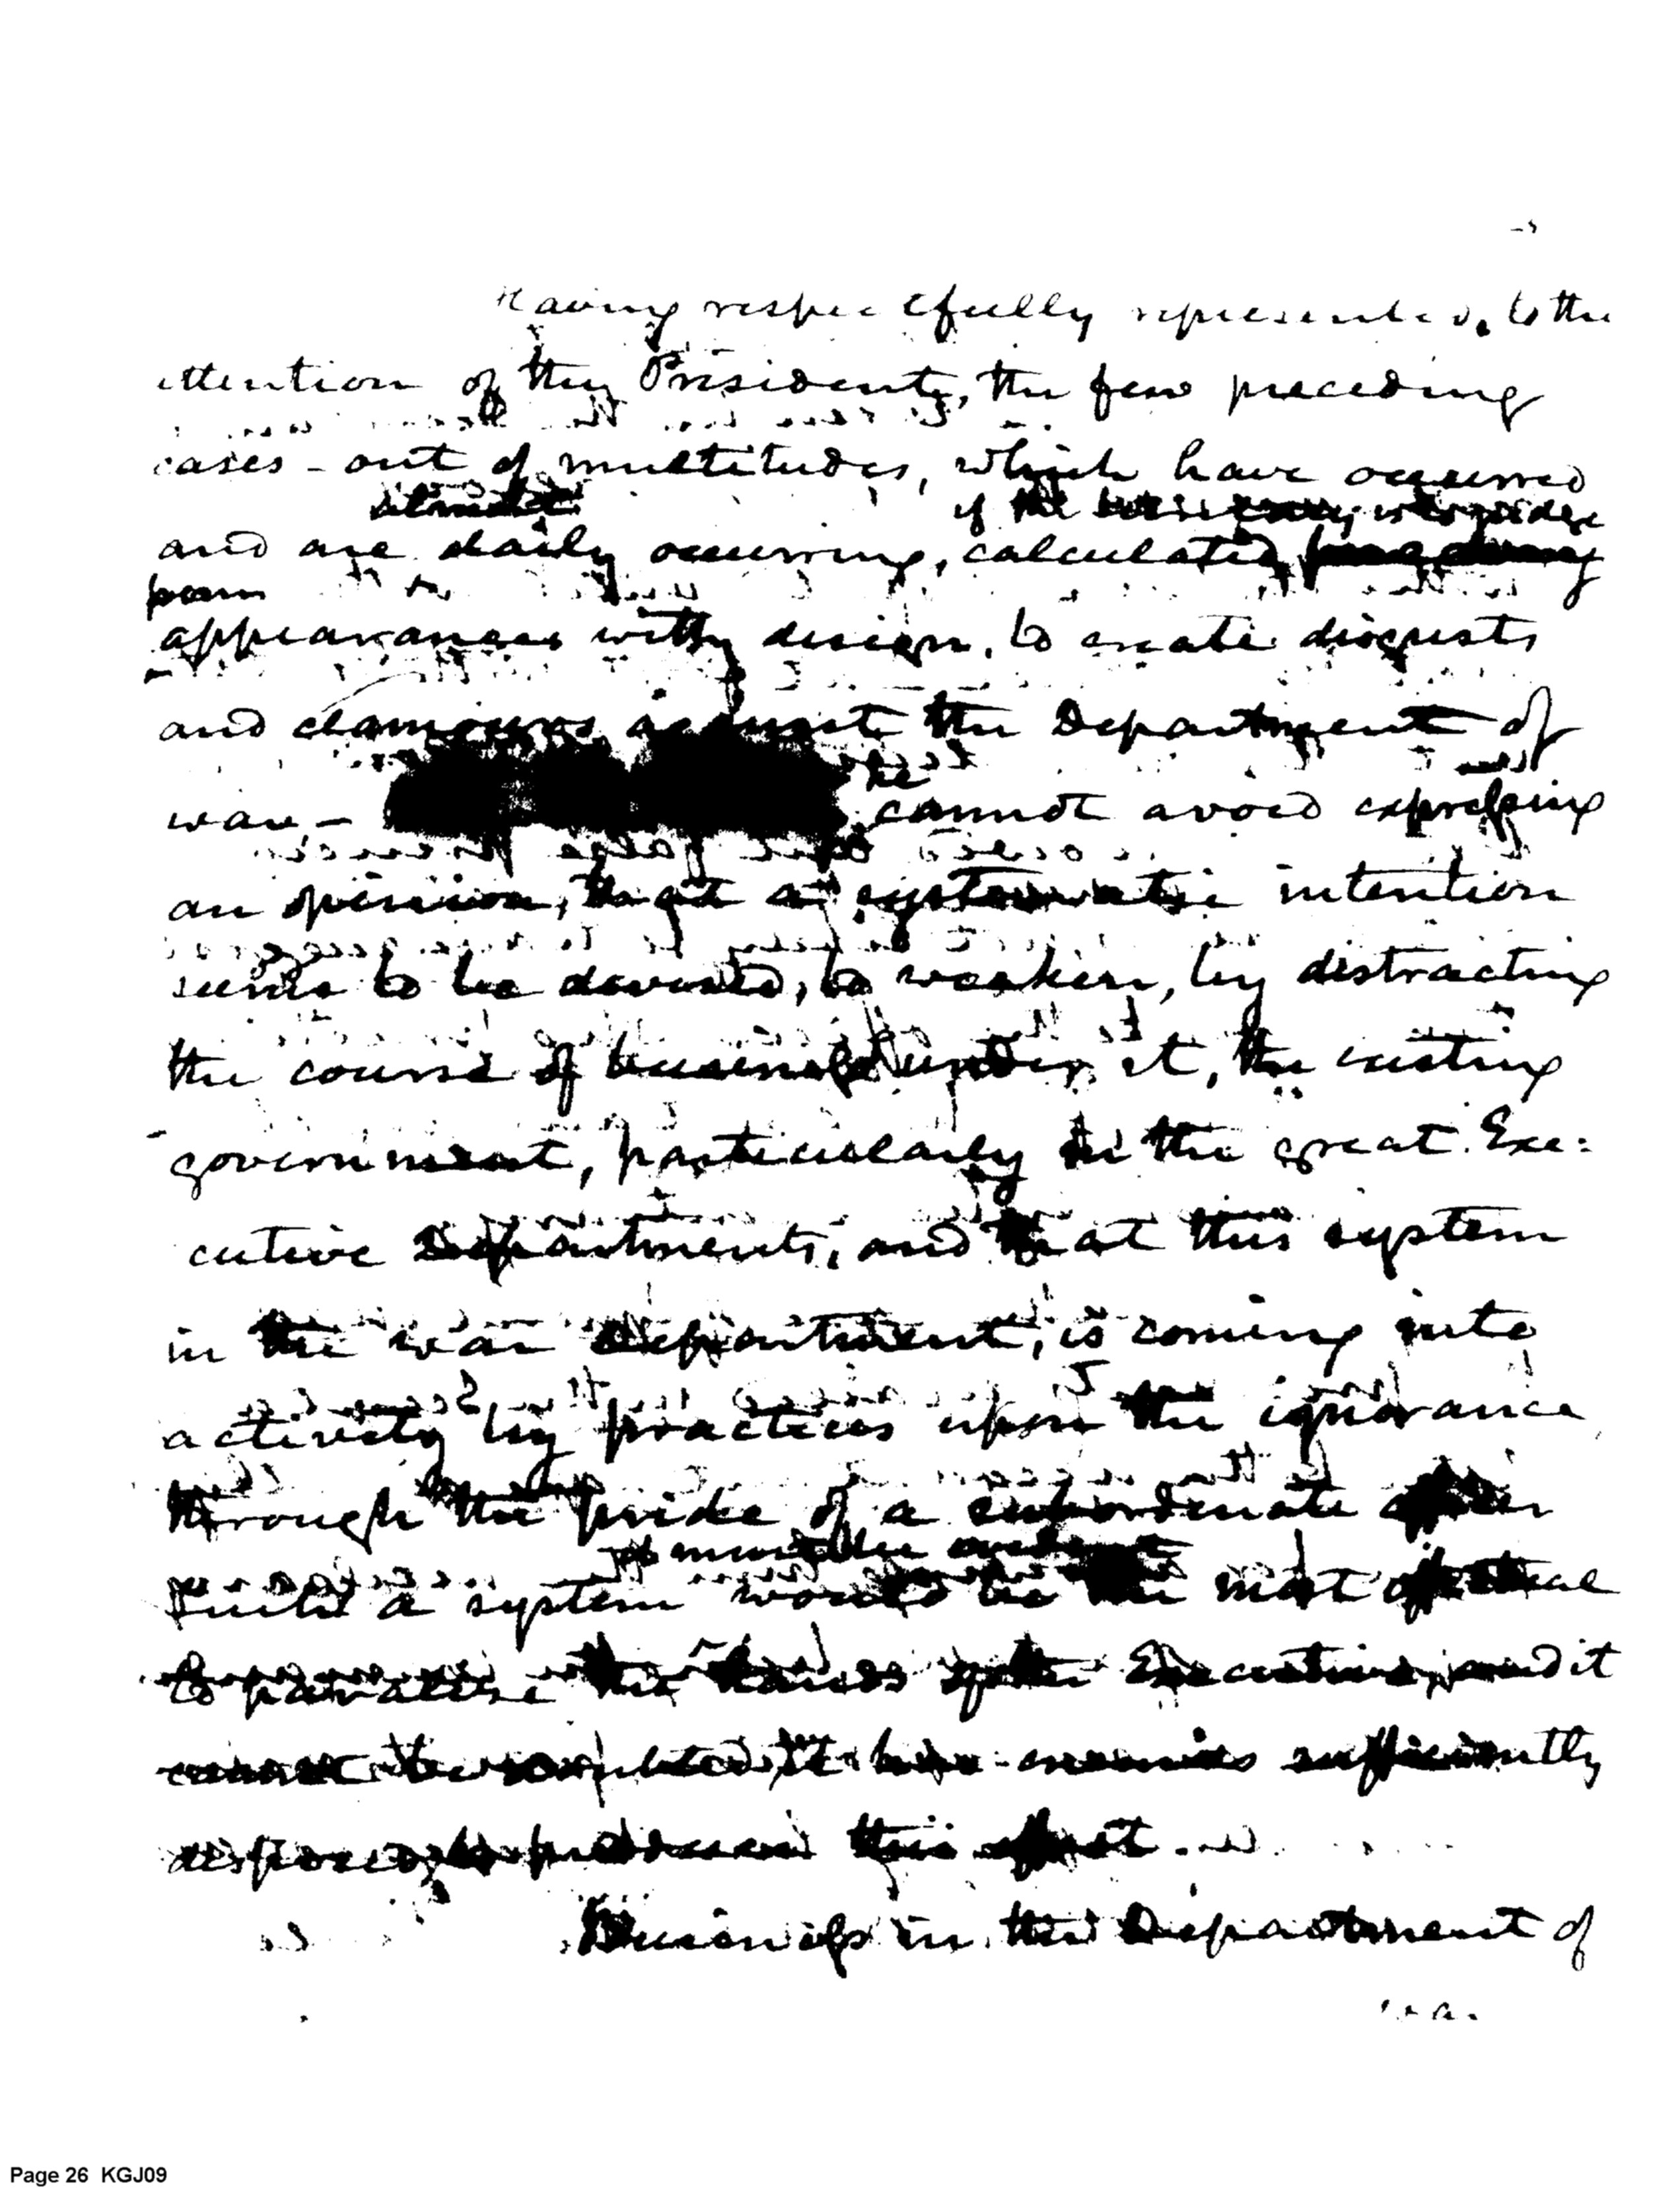 Having respectfully represented, to the
attention of the President, the few preceding
cases - out of multitudes, which have occurred
almost
if the
and are daily occurring, calculated
from
appearances with design, to create disgusts
and clamours against the Department of
war, -
he
cannot avoid expressing
an opinion, that a systematic intention
seems to be devised, to weaken, by distracting
the course of business under it, the existing
government, particularly in the great Exe:
cutive Departments, and that this system
in the war Department, is coming into
activity by practices upon the ignorance
through the pride of a subordinate officer
Such a system would be the most effectual
to paralise the hands of the Executive, and it
cannot be it has enemies sufficiently
disposed to produce this effect.
Business in the Department of
wa.
Page 26 KGJ09